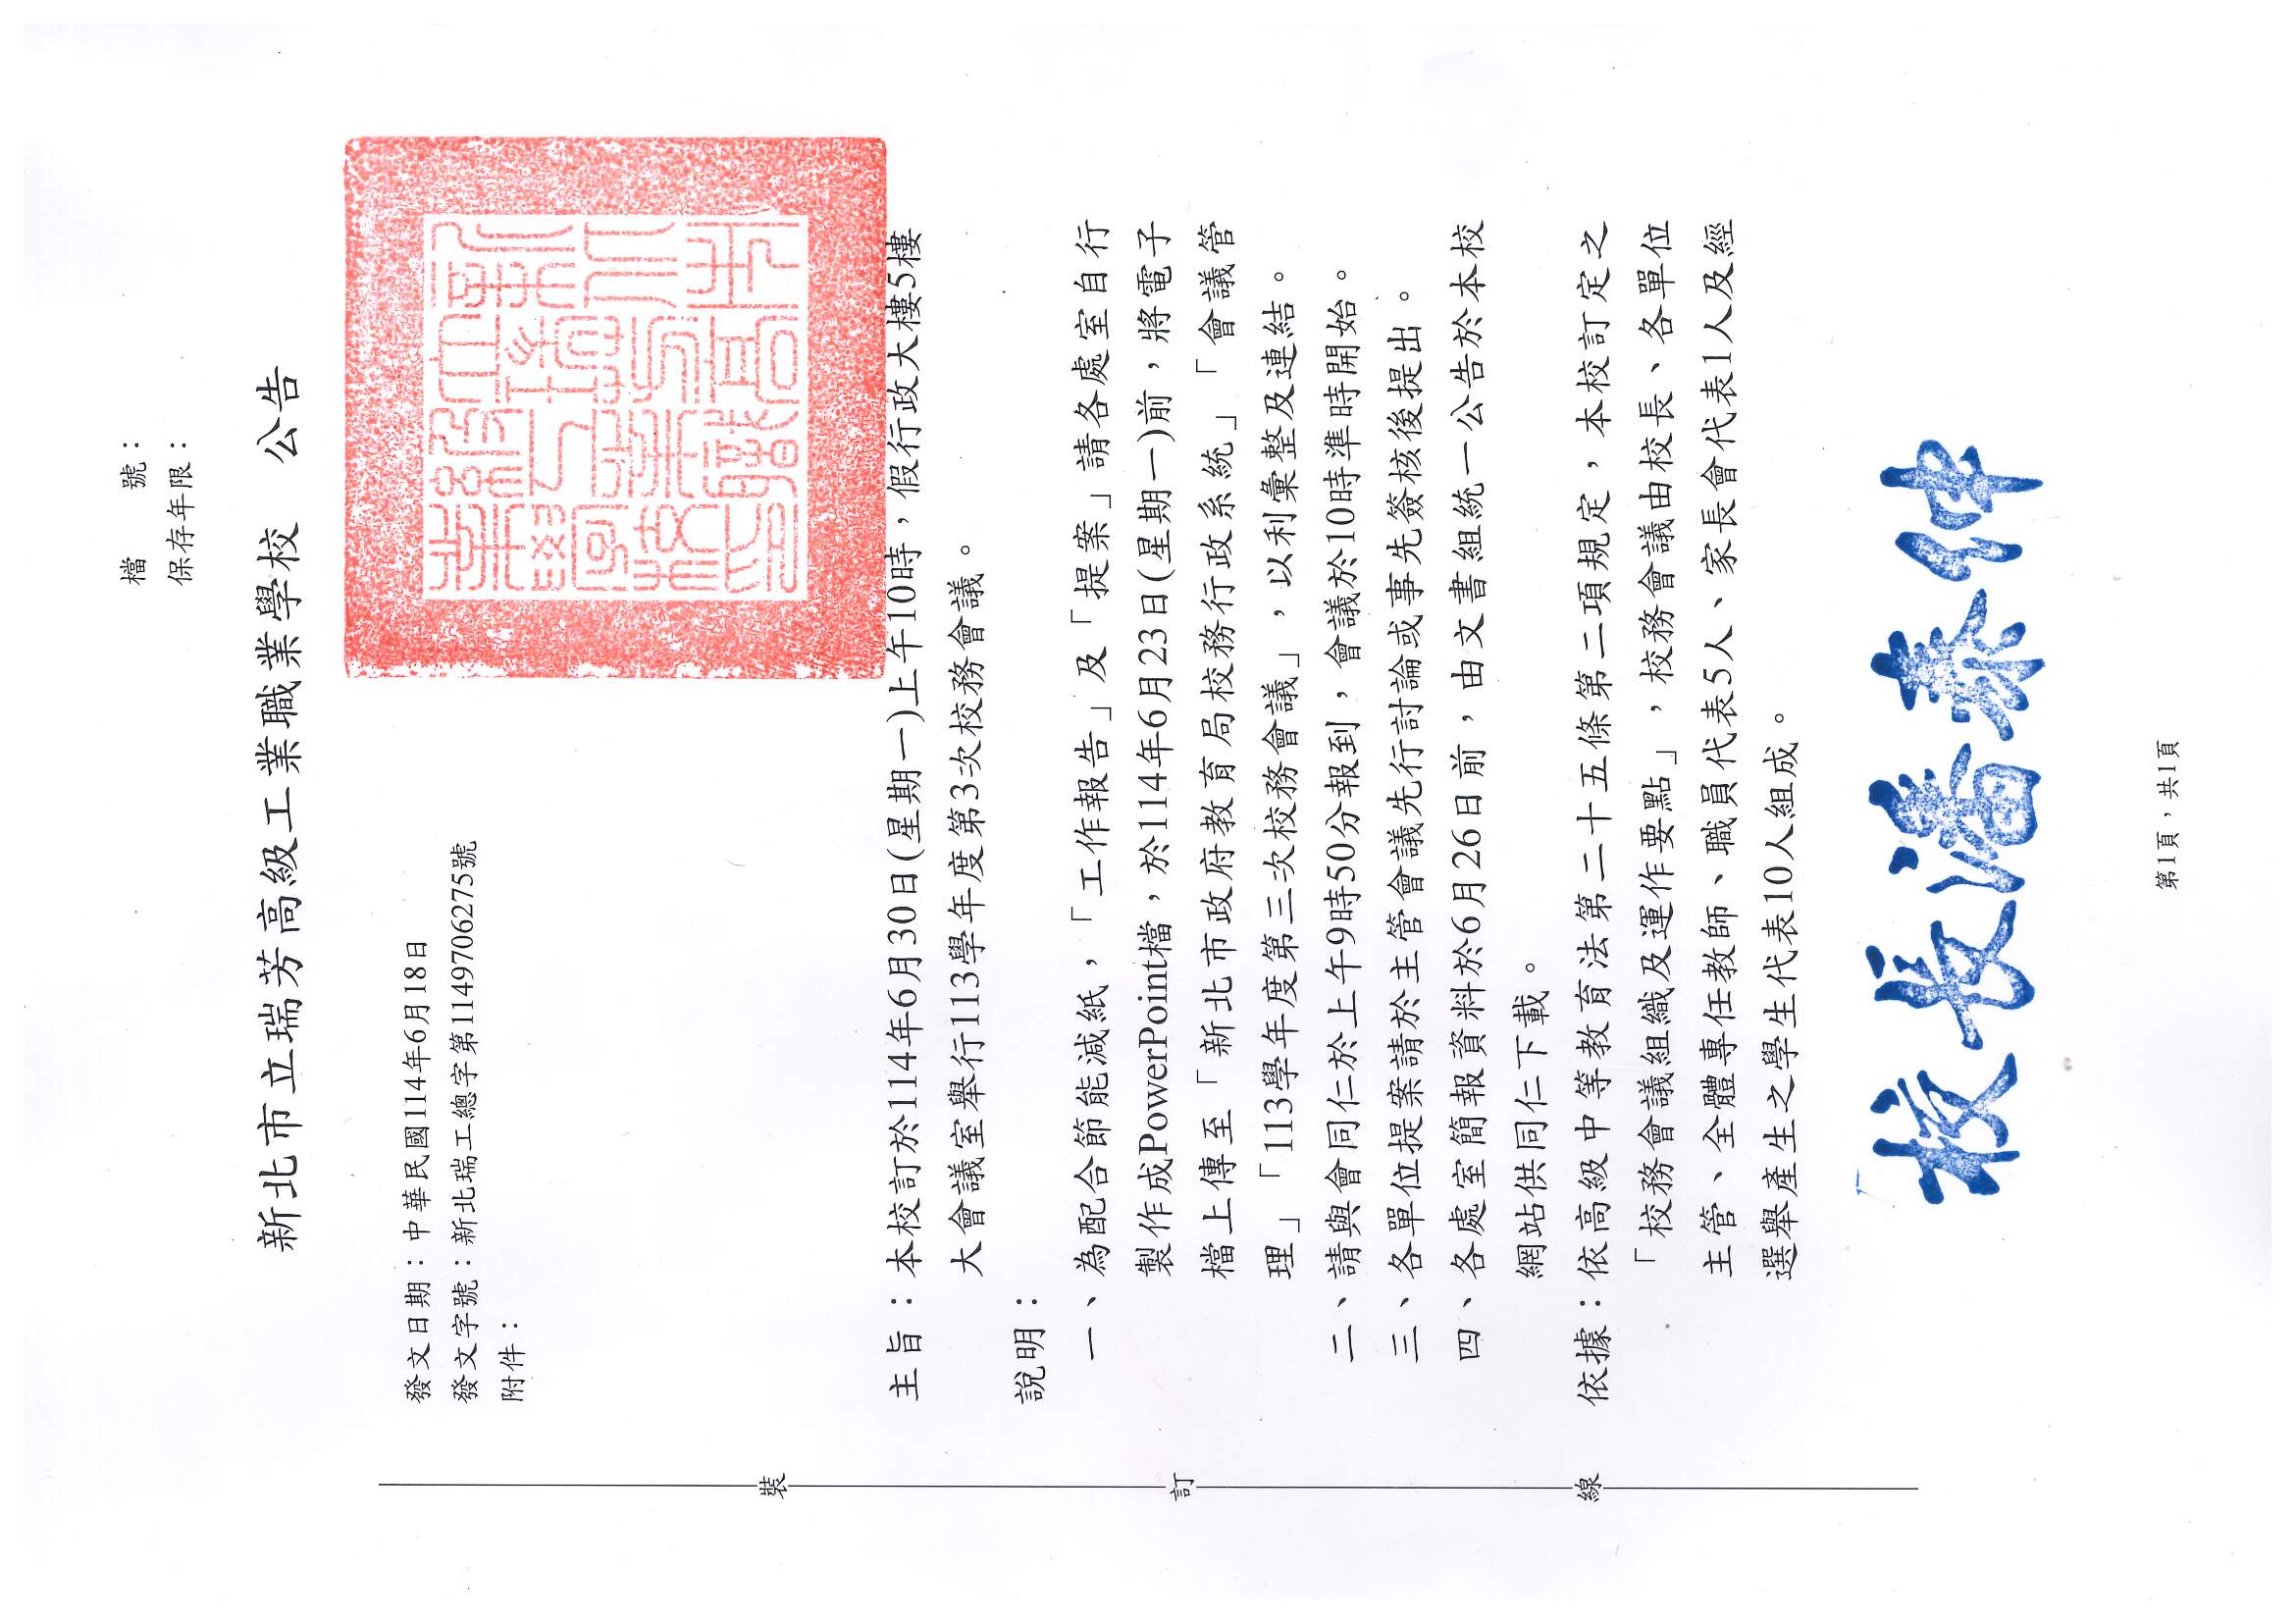 檔　　號：
保存年限：
新北市立瑞芳高級工業職業學校　公告
發文日期：中華民國114年6月18日
發文字號：新北瑞工總字第1149706275號
附件：
主旨：本校訂於114年6月30日(星期一)上午10時，假行政大樓5樓
大會議室舉行113學年度第3次校務會議。
說明：
一、為配合節能減紙，「工作報告」及「提案」請各處室自行
製作成PowerPoint檔，於114年6月23日(星期一)前，將電子
檔上傳至「新北市政府教育局校務行政系統」「會議管
理」「113學年度第三次校務會議」，以利彙整及連結。
二、請與會同仁於上午9時50分報到，會議於10時準時開始。
三、各單位提案請於主管會議先行討論或事先簽核後提出。
四、各處室簡報資料於6月26日前，由文書組統一公告於本校
網站供同仁下載。
依據：依高級中等教育法第二十五條第二項規定，本校訂定之
「校務會議組織及運作要點」，校務會議由校長、各單位
主管、全體專任教師、職員代表5人、家長會代表1人及經
選舉產生之學生代表10人組成。
校長潘泰伸
裝
訂
線
第1頁，共1頁